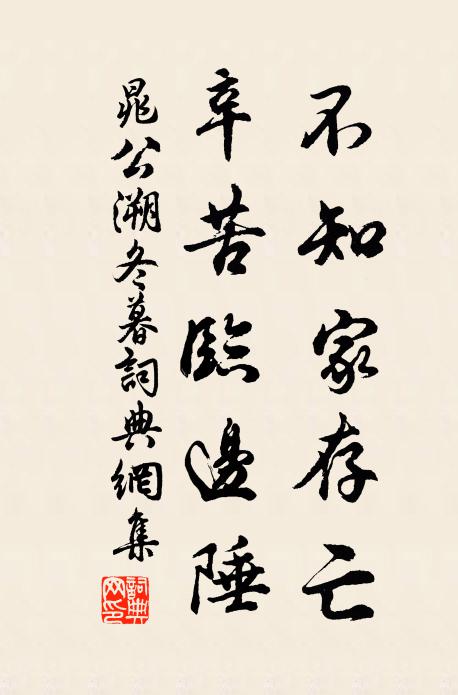 不知家存亡
辛苦臨邊陲
晁公溯冬暮詞典網集
詞典網印